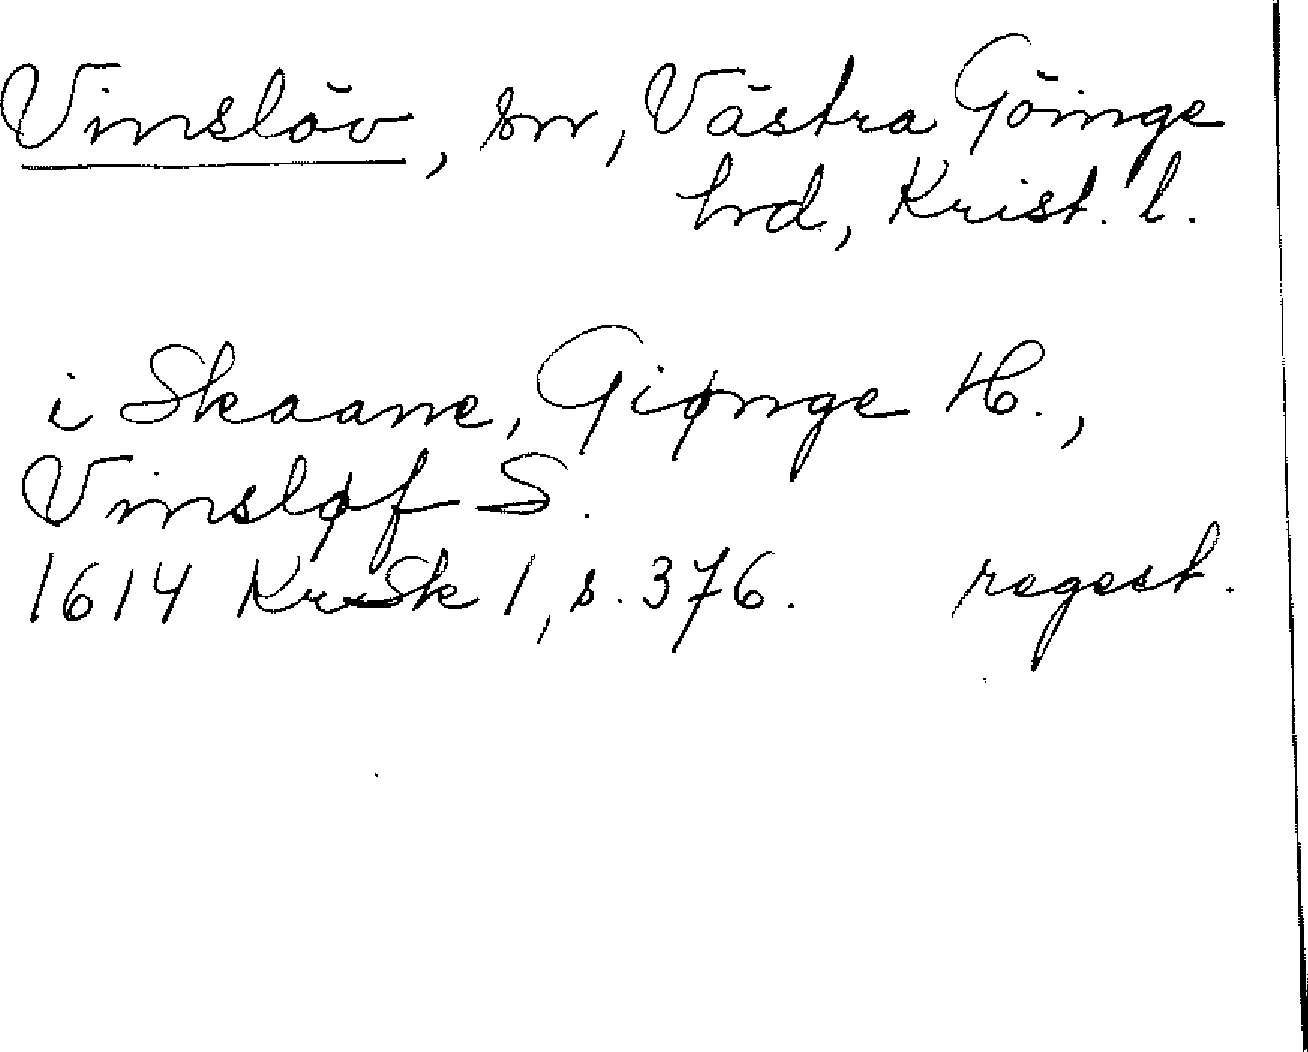 Vinslöv, sn, Västra Göinge
hrd, Krist. l.
i Skaane, Giønge H.,
Vinsløf S.
1614 KrSk 1, s. 376. regest.